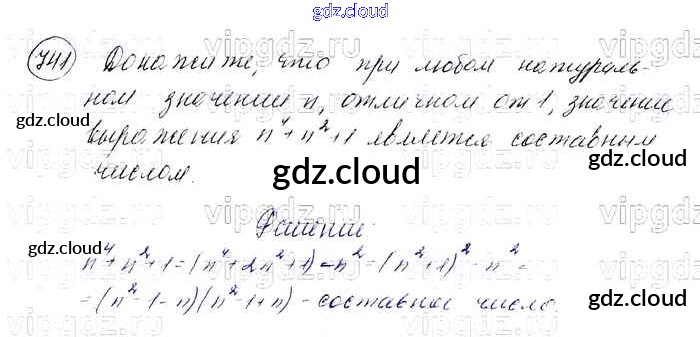 gdz.cloud
741 Докажите, что при любом натураль-
ном значении n, отличном от 1, значение
gdz.cloud
выражения n⁴+n²+1 является составным
gdz.cloud
числом.
gdz.cloud
Решение:
gdz.cloud
n⁴+n²+1=(n⁴+2n²+1)-n²=(n²+1)²-n²=
=(n²-1-n)(n²-1+n) - составное число.
gdz.cloud